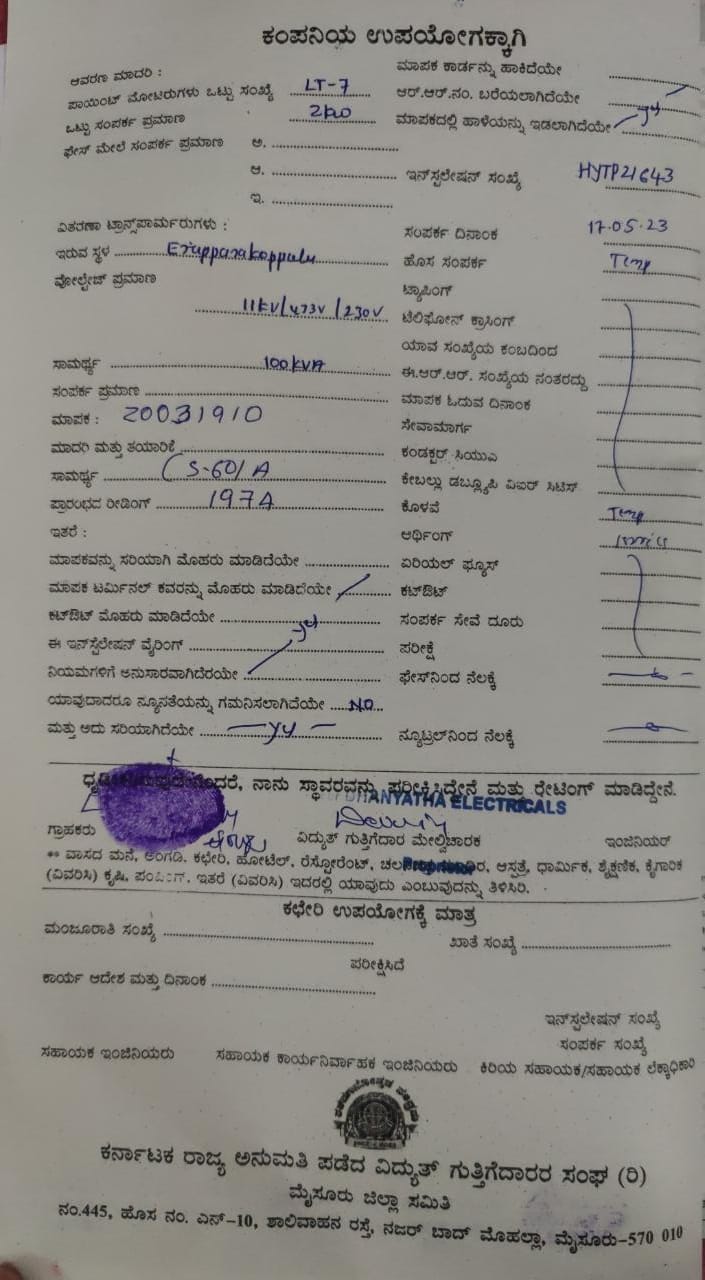 ಕಂಪನಿಯ ಉಪಯೋಗಕ್ಕಾಗಿ
ಆವರಣ ಮಾದರಿ :
ಮಾಪಕ ಕಾರ್ಡನ್ನು ಹಾಕಿದೆಯೇ
ಪಾಯಿಂಟ್ ಮೋಟರುಗಳು ಒಟ್ಟು ಸಂಖ್ಯೆ LT-7
ಆರ್.ಆರ್.ನಂ. ಬರೆಯಲಾಗಿದೆಯೇ
ಒಟ್ಟು ಸಂಪರ್ಕ ಪ್ರಮಾಣ
ಮಾಪಕದಲ್ಲಿ ಹಾಳೆಯನ್ನು ಇಡಲಾಗಿದೆಯೇ
ಫೇಸ್ ಮೇಲೆ ಸಂಪರ್ಕ ಪ್ರಮಾಣ ಅ.
ಆ.
ಇನ್‌ಸ್ಟಲೇಷನ್ ಸಂಖ್ಯೆ HJTP21643
ಇ.
ವಿತರಣಾ ಟ್ರಾನ್ಸ್‌ಪಾರ್ಮರುಗಳು :
ಸಂಪರ್ಕ ದಿನಾಂಕ 17.05.23
ಇರುವ ಸ್ಥಳ
ಹೊಸ ಸಂಪರ್ಕ Temp
ವೋಲ್ಟೇಜ್ ಪ್ರಮಾಣ
ಟ್ಯಾಪಿಂಗ್
11KV/433V/230V
ಟೆಲಿಫೋನ್ ಕ್ರಾಸಿಂಗ್
ಯಾವ ಸಂಖ್ಯೆಯ ಕಂಬದಿಂದ
ಸಾಮರ್ಥ್ಯ 100KVA
ಈ.ಆರ್.ಆರ್. ಸಂಖ್ಯೆಯ ನಂತರದ್ದು
ಸಂಪರ್ಕ ಪ್ರಮಾಣ
ಮಾಪಕ ಓದುವ ದಿನಾಂಕ
ಮಾಪಕ : 20031910
ಸೇವಾಮಾರ್ಗ
ಮಾದರಿ ಮತ್ತು ತಯಾರಿಕೆ
ಕಂಡಕ್ಟರ್ ಸಿಯುಎ
ಸಾಮರ್ಥ್ಯ (5-60)A
ಕೇಬಲ್ಲು ಡಬ್ಲ್ಯೂಪಿ ವಿಐಆರ್ ಸಿಟಿಸ್
ಪ್ರಾರಂಭದ ರೀಡಿಂಗ್
ಕೊಳವೆ Temp
ಇತರೆ :
ಆರ್ಥಿಂಗ್
ಮಾಪಕವನ್ನು ಸರಿಯಾಗಿ ಮೊಹರು ಮಾಡಿದೆಯೇ
ಏರಿಯಲ್ ಫ್ಯೂಸ್
ಮಾಪಕ ಟರ್ಮಿನಲ್ ಕವರನ್ನು ಮೊಹರು ಮಾಡಿದೆಯೇ
ಕಟ್‌ಔಟ್
ಕಟ್‌ಔಟ್ ಮೊಹರು ಮಾಡಿದೆಯೇ
ಸಂಪರ್ಕ ಸೇವೆ ದೂರು
ಈ ಇನ್‌ಸ್ಟಲೇಷನ್ ವೈರಿಂಗ್
ಪರೀಕ್ಷೆ
ನಿಯಮಗಳಿಗೆ ಅನುಸಾರವಾಗಿದೆರಯೇ
ಫೇಸ್‌ನಿಂದ ನೆಲಕ್ಕೆ
ಯಾವುದಾದರೂ ನ್ಯೂನತೆಯನ್ನು ಗಮನಿಸಲಾಗಿದೆಯೇ NO
ಮತ್ತು ಅದು ಸರಿಯಾಗಿದೆಯೇ
ನ್ಯೂಟ್ರಲ್‌ನಿಂದ ನೆಲಕ್ಕೆ
ನಾನು ಸ್ಥಾವರವನ್ನು ಪರೀಕ್ಷಿಸಿದ್ದೇನೆ ಮತ್ತು ರೇಟಿಂಗ್ ಮಾಡಿದ್ದೇನೆ.
DHANYATHA ELECTRICALS
ಗ್ರಾಹಕರು ವಿದ್ಯುತ್ ಗುತ್ತಿಗೆದಾರ ಮೇಲ್ವಿಚಾರಕ ಇಂಜಿನಿಯರ್
** ವಾಸದ ಮನೆ, ಅಂಗಡಿ. ಕಛೇರಿ, ಹೋಟೆಲ್, ರೆಸ್ಟೋರೆಂಟ್, ಆಸ್ಪತ್ರೆ, ಧಾರ್ಮಿಕ, ಶೈಕ್ಷಣಿಕ, ಕೈಗಾರಿಕ
(ವಿವರಿಸಿ) ಕೃಷಿ, ಪಂಪಿಂಗ್, ಇತರೆ (ವಿವರಿಸಿ) ಇದರಲ್ಲಿ ಯಾವುದು ಎಂಬುವುದನ್ನು ತಿಳಿಸಿರಿ.
ಕಛೇರಿ ಉಪಯೋಗಕ್ಕೆ ಮಾತ್ರ
ಮಂಜೂರಾತಿ ಸಂಖ್ಯೆ
ಖಾತೆ ಸಂಖ್ಯೆ
ಪರೀಕ್ಷಿಸಿದೆ
ಕಾರ್ಯ ಆದೇಶ ಮತ್ತು ದಿನಾಂಕ
ಇನ್‌ಸ್ಟಲೇಷನ್ ಸಂಖ್ಯೆ
ಸಂಪರ್ಕ ಸಂಖ್ಯೆ
ಸಹಾಯಕ ಇಂಜಿನಿಯರು ಸಹಾಯಕ ಕಾರ್ಯನಿರ್ವಾಹಕ ಇಂಜಿನಿಯರು ಕಿರಿಯ ಸಹಾಯಕ/ಸಹಾಯಕ ಲೆಕ್ಕಾಧಿಕಾರಿ
ಕರ್ನಾಟಕ ರಾಜ್ಯ ಅನುಮತಿ ಪಡೆದ ವಿದ್ಯುತ್ ಗುತ್ತಿಗೆದಾರರ ಸಂಘ (ರಿ)
ಮೈಸೂರು ಜಿಲ್ಲಾ ಸಮಿತಿ
ನಂ.445, ಹೊಸ ನಂ. ಎನ್-10, ಶಾಲಿವಾಹನ ರಸ್ತೆ, ನಜರ್ ಬಾದ್ ಮೊಹಲ್ಲಾ, ಮೈಸೂರು-570 010